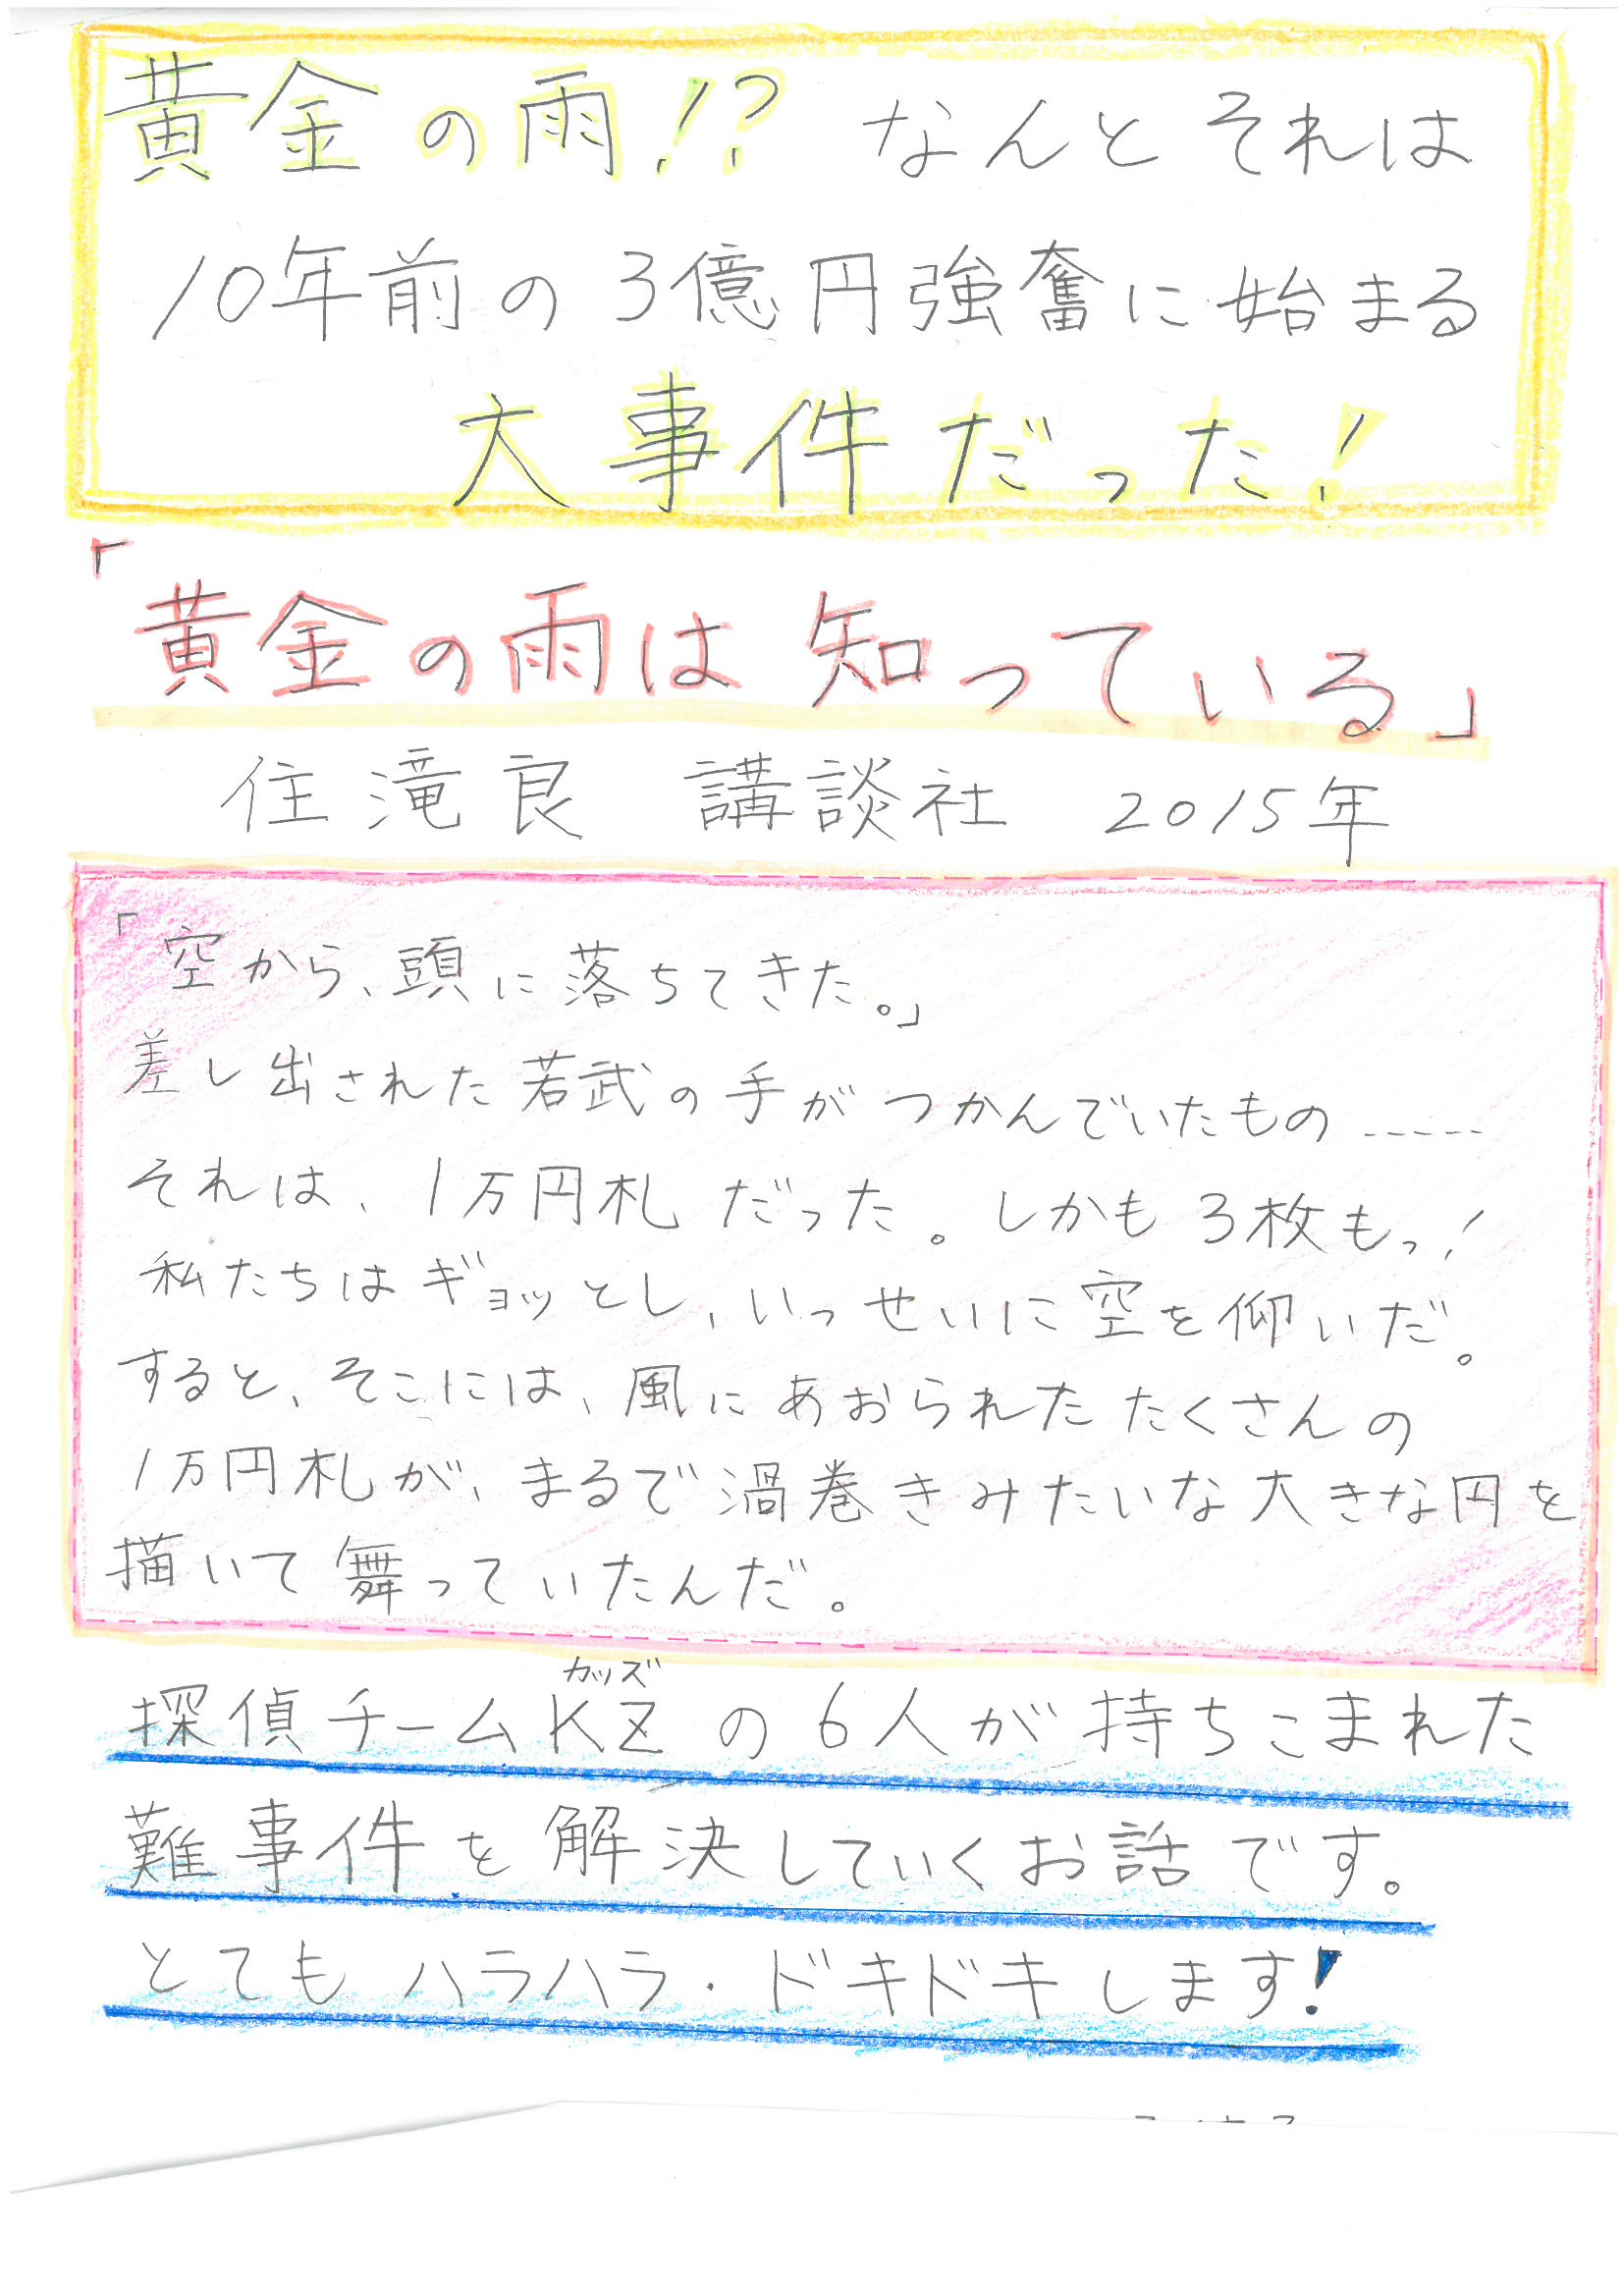 黄金の雨!? なんとそれは
10年前の3億円強奮に始まる
大事件だった!
「黄金の雨は知っている」
住滝良 講談社 2015年
「空から、頭に落ちてきた。」
差し出された若武の手がつかんでいたもの-----
それは、1万円札だった。しかも3枚もっ!
私たちはギョッとし、いっせいに空を仰いだ。
すると、そこには、風にあおられたたくさんの
1万円札が、まるで渦巻きみたいな大きな円を
描いて舞っていたんだ。
カッズ
探偵チームKZの6人が持ちこまれた
難事件を解決していくお話です。
とてもハラハラ・ドキドキします!